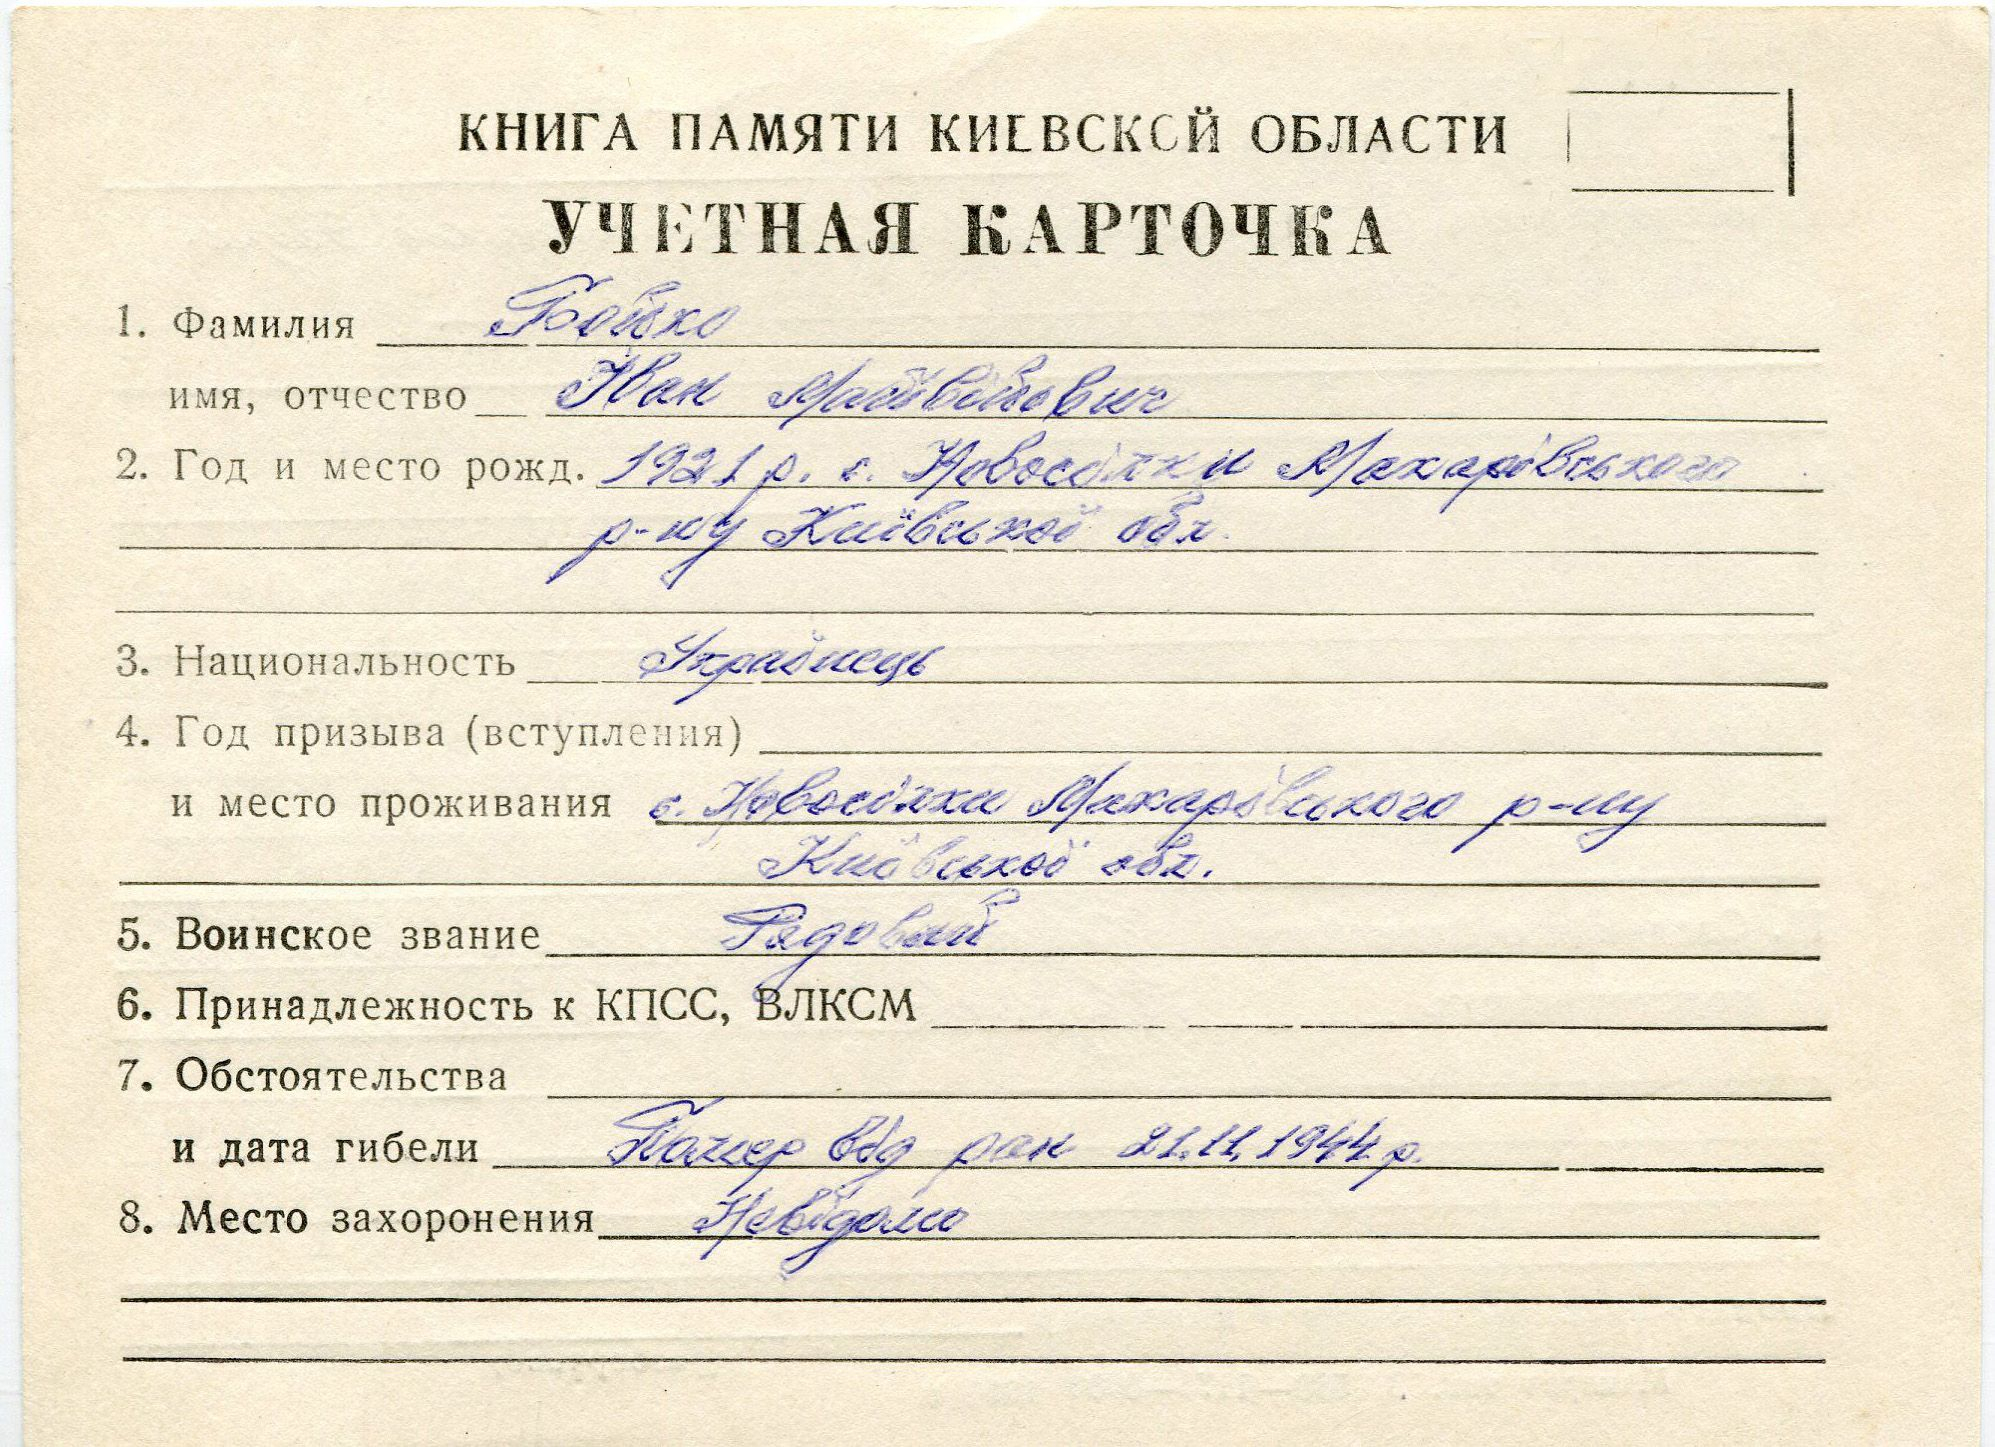 КНИГА ПАМЯТИ КИЕВСКОЙ ОБЛАСТИ
УЧЕТНАЯ КАРТОЧКА
1. Фамилия Бойко
имя, отчество Іван Матвійович
2. Год и место рожд. 1921 р. с. Новосілки Макарівського
р-ну Київської обл.
3. Национальность Українець
4. Год призыва (вступления)
и место проживания с. Новосілки Макарівського р-ну
Київської обл.
5. Воинское звание Рядовий
6. Принадлежность к КПСС, ВЛКСМ
7. Обстоятельства
и дата гибели Помер від ран 21.11.1944 р.
8. Место захоронения Невідомо